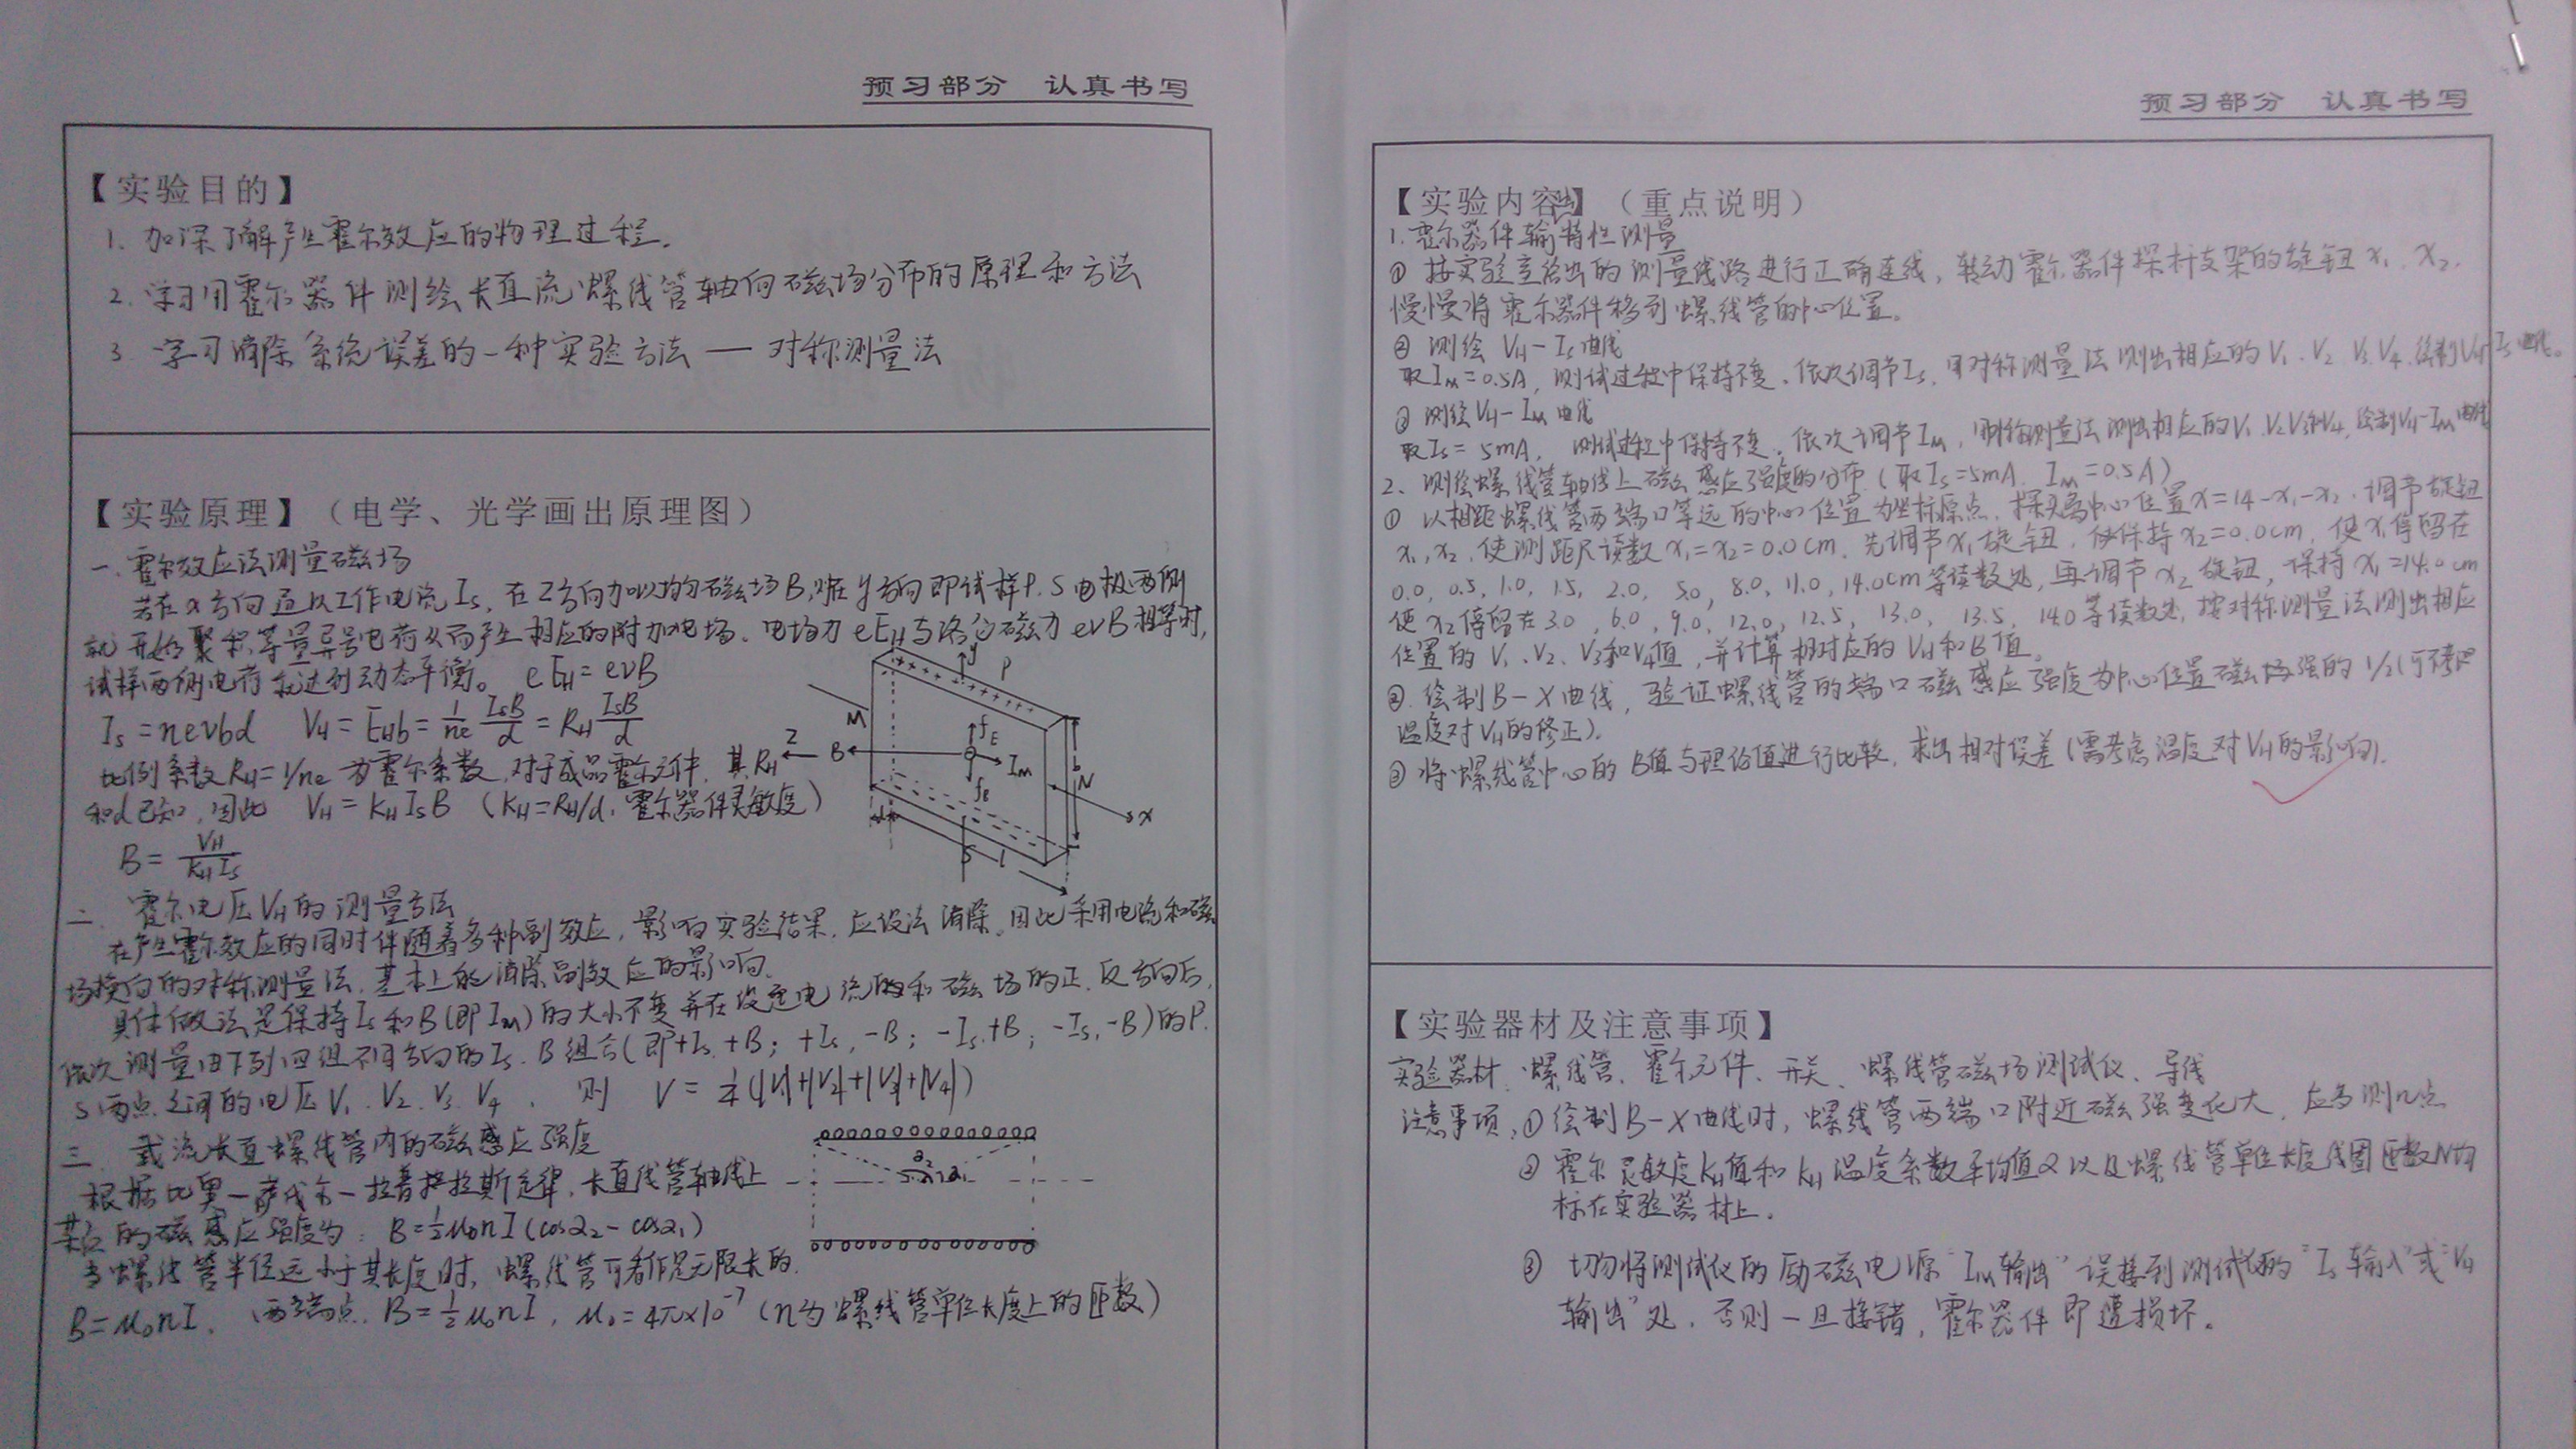 预习部分 认真书写
【实验目的】
1. 加深了解产生霍尔效应的物理过程.
2. 学习用霍尔器件测绘长直流螺线管轴向磁场分布的原理和方法
3. 学习消除系统误差的一种实验方法 — 对称测量法
【实验原理】（电学、光学画出原理图）
一. 霍尔效应法测量磁场
若在x方向通以工作电流Is, 在Z方向加以均匀磁场B, 则在y方向即试样P, S电极两侧
就开始聚积等量异号电荷从而产生相应的附加电场. 电场力eEH与洛仑磁力evB相等时,
试样两侧电荷就达到动态平衡。 eEH = evB
Is = nevbd VH = EHb = 1/ne IsB/d = RH IsB/d
比例系数RH=1/ne 为霍尔系数, 对于成品霍尔元件, 其RH
和d已知, 因此 VH = KH IsB (KH=RH/d, 霍尔器件灵敏度)
B = VH/KH Is
y P
M Z B fE IM b N
fB x
d S l
二. 霍尔电压VH的测量方法
在产生霍尔效应的同时伴随着多种副效应, 影响实验结果, 应设法消除。因此采用电流和磁
场换向的对称测量法, 基本上能消除副效应的影响.
具体做法是保持Is和B(即IM)的大小不变并在设定电流和磁场的正、反方向后,
依次测量由下列四组不同方向的Is、B组合(即+Is, +B; +Is, -B; -Is, +B; -Is, -B)的P.
S两点之间的电压V1、V2、V3、V4, 则 V = 1/4(|V1|+|V2|+|V3|+|V4|)
三. 载流长直螺线管内的磁感应强度
根据比奥—萨伐尔—拉普拉斯定律, 长直线管轴线上
某点的磁感应强度为: B=½μ0nI(cosα2 - cosα1)
当螺线管半径远小于其长度时, 螺线管可看作是无限长的.
B=μ0nI, 两端点. B=½μ0nI, μ0=4π×10⁻⁷ (n为螺线管单位长度上的匝数)
预习部分 认真书写
【实验内容】（重点说明）
1. 霍尔器件输特性测量
① 按实验室给出的测量线路进行正确连线, 转动霍尔器件探杆支架的旋钮x1、x2,
慢慢将霍尔器件移到螺线管的中心位置。
② 测绘 VH-Is曲线
取IM=0.5A, 测试过程中保持不变. 依次调节Is, 用对称测量法测出相应的V1、V2、V3、V4, 绘制VH-Is曲线。
③ 测绘VH-IM曲线
取Is=5mA, 测试过程中保持不变. 依次调节IM, 用对称测量法测出相应的V1、V2、V3和V4, 绘制VH-IM曲线
2、测绘螺线管轴线上磁感应强度的分布. (取Is=5mA. IM=0.5A)
① 以相距螺线管两端口等远的中心位置为坐标原点, 探头离中心位置x=14-x1-x2, 调节旋钮
x1, x2, 使测距尺读数x1=x2=0.0cm. 先调节x1旋钮, 保持x2=0.0cm, 使x1停留在
0.0, 0.5, 1.0, 1.5, 2.0, 5.0, 8.0, 11.0, 14.0cm等读数处, 再调节x2旋钮, 保持x1=14.0cm
使x2停留在3.0, 6.0, 9.0, 12.0, 12.5, 13.0, 13.5, 14.0等读数处, 按对称测量法测出相应
位置的V1、V2、V3和V4值, 并计算相对应的VH和B值。
②. 绘制B-X曲线, 验证螺线管的端口磁感应强度为中心位置磁场强的1/2(可不考虑
温度对VH的修正).
③ 将螺线管中心的B值与理论值进行比较, 求出相对误差(需考虑温度对VH的影响).
【实验器材及注意事项】
实验器材: 螺线管、霍尔元件、开关、螺线管磁场测试仪、导线
注意事项: ① 绘制B-X曲线时, 螺线管两端口附近磁强变化大, 应多测几点
② 霍尔灵敏度KH值和KH温度系数平均值α以及螺线管单位长度线圈匝数N均
标在实验器材上。
③ 切勿将测试仪的励磁电源"IM输出"误接到测试仪的"Is输入"或"VH
输出"处, 否则一旦接错, 霍尔器件即遭损坏。